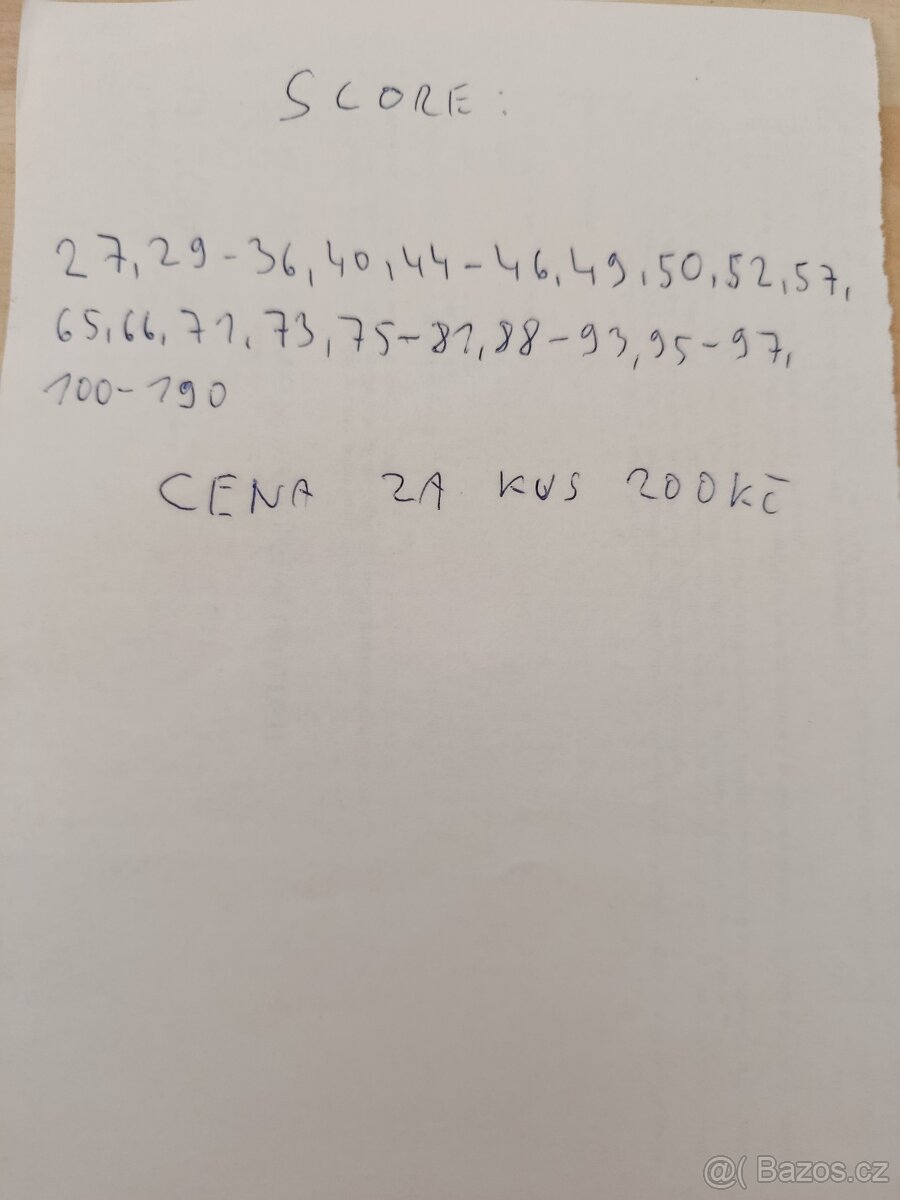 SCORE:
27, 29-36, 40, 44-46, 49, 50, 52, 57,
65, 66, 71, 73, 75-81, 88-93, 95-97,
100-190
CENA ZA KUS 200KČ
@( Bazos.cz